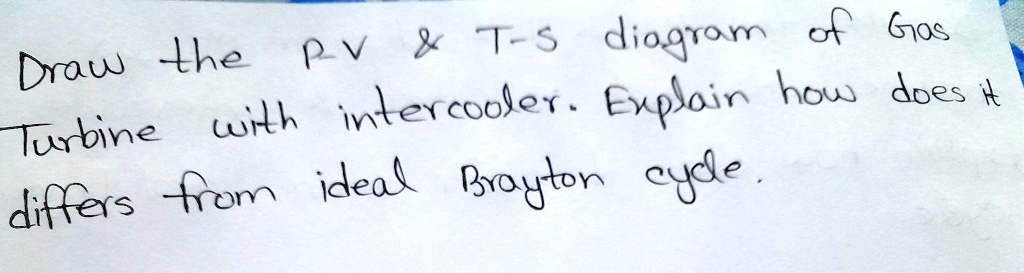 Draw the P-V & T-S diagram of Gas
Turbine with intercooler. Explain how does it
differs from ideal Brayton cycle.